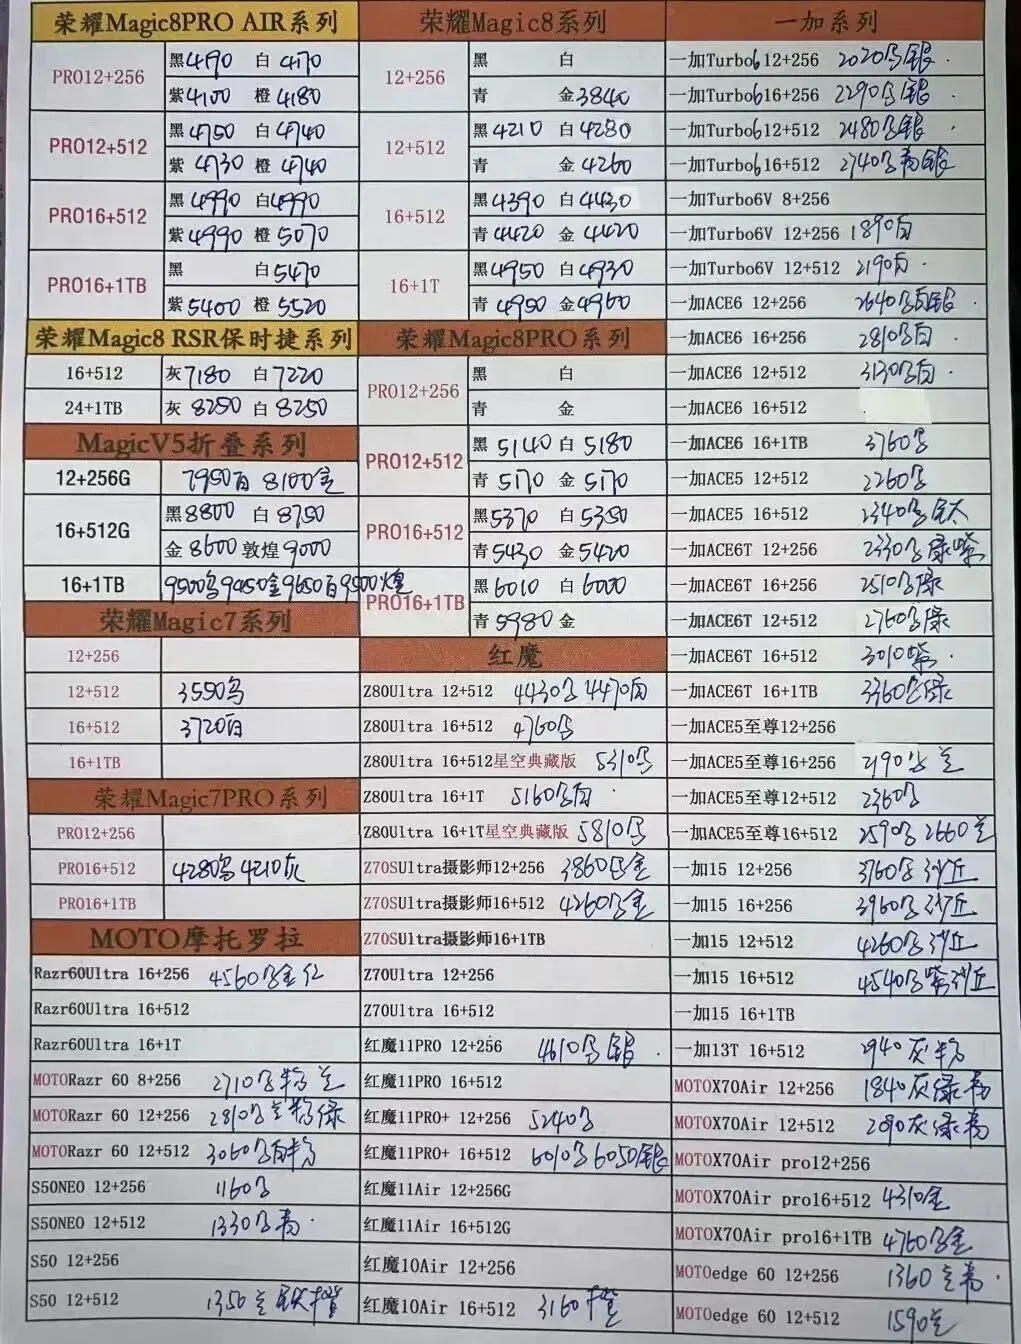 荣耀Magic8PRO AIR系列
PRO12+256 黑4190 白4170
紫4100 橙4180
PRO12+512 黑4750 白4740
紫4730 橙4740
PRO16+512 黑4990 白4990
紫4990 橙5070
PRO16+1TB 黑 白5470
紫5400 橙5520
荣耀Magic8 RSR保时捷系列
16+512 灰7180 白7220
24+1TB 灰8250 白8250
MagicV5折叠系列
12+256G 7950白 8100金
16+512G 黑8800 白8750
金8600敦煌9000
16+1TB 9500乌9450金9650白9500煌
荣耀Magic7系列
12+256
12+512 3550乌
16+512 3720白
16+1TB
荣耀Magic7PRO系列
PRO12+256
PRO16+512 4280乌4210灰
PRO16+1TB
MOTO摩托罗拉
Razr60Ultra 16+256 4560乌金红
Razr60Ultra 16+512
Razr60Ultra 16+1T
MOTORazr 60 8+256 2710乌粉兰
MOTORazr 60 12+256 2810乌兰粉绿
MOTORazr 60 12+512 3060乌白粉
S50NEO 12+256 1160乌
S50NEO 12+512 1330乌青
S50 12+256
S50 12+512 1350兰
荣耀Magic8系列
12+256 黑 白
青 金3840
12+512 黑4210 白4280
青 金4260
16+512 黑4390 白4430
青4420 金4420
16+1T 黑4950 白4930
青4950 金4960
荣耀Magic8PRO系列
PRO12+256 黑 白
青 金
PRO12+512 黑5140 白5180
青5170 金5170
PRO16+512 黑5370 白5350
青5430 金5420
PRO16+1TB 黑6010 白6000
青5980金
红魔
Z80Ultra 12+512 4430乌4470白
Z80Ultra 16+512 4760乌
Z80Ultra 16+512星空典藏版 5310乌
Z80Ultra 16+1T 5160乌白
Z80Ultra 16+1T星空典藏版 5810乌
Z70SUltra摄影师12+256 3860乌金
Z70SUltra摄影师16+512 4260乌金
Z70SUltra摄影师16+1TB
Z70Ultra 12+256
Z70Ultra 16+512
红魔11PRO 12+256 4610乌银
红魔11PRO 16+512
红魔11PRO+ 12+256 5240乌
红魔11PRO+ 16+512 6010乌6050银
红魔11Air 12+256G
红魔11Air 16+512G
红魔10Air 12+256
红魔10Air 16+512 3160橙
一加系列
一加Turbo6 12+256 2020乌银
一加Turbo6 16+256 2290乌银
一加Turbo6 12+512 2480乌银
一加Turbo6 16+512 2740乌青银
一加Turbo6V 8+256
一加Turbo6V 12+256 1890白
一加Turbo6V 12+512 2190白
一加ACE6 12+256 2640乌白银
一加ACE6 16+256 2810乌白
一加ACE6 12+512 3130乌白
一加ACE6 16+512
一加ACE6 16+1TB 3760乌
一加ACE5 12+512 2260乌
一加ACE5 16+512 2340乌钛
一加ACE6T 12+256 2330乌绿紫
一加ACE6T 16+256 2510乌绿
一加ACE6T 12+512 2760乌绿
一加ACE6T 16+512 3010紫
一加ACE6T 16+1TB 3360乌绿
一加ACE5至尊12+256
一加ACE5至尊16+256 2190乌兰
一加ACE5至尊12+512 2360乌
一加ACE5至尊16+512 2590乌2660兰
一加15 12+256 3760乌沙丘
一加15 16+256 3960乌沙丘
一加15 12+512 4260乌沙丘
一加15 16+512 4540乌紫沙丘
一加15 16+1TB
一加13T 16+512 2940灰粉
MOTOX70Air 12+256 1840灰绿青
MOTOX70Air 12+512 2090灰绿青
MOTOX70Air pro12+256
MOTOX70Air pro16+512 4310金
MOTOX70Air pro16+1TB 4760乌金
MOTOedge 60 12+256 1360兰青
MOTOedge 60 12+512 1590兰